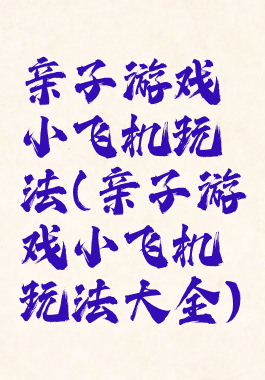 亲子游戏
小飞机玩
法(亲子游
戏小飞机
玩法大全)